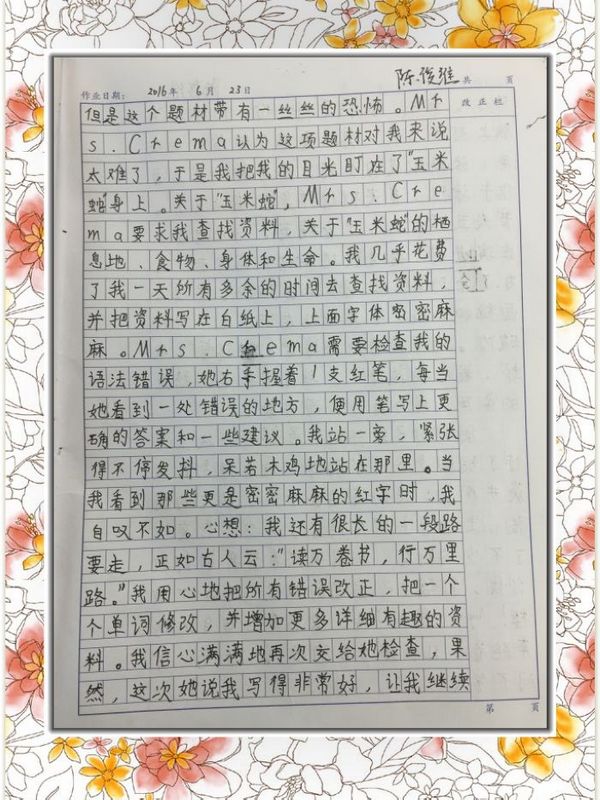 陈
共 页
作业日期： 2016年 6月 23日
改正栏
但是这个题材带有一丝丝的恐怖。Mr
s.Crema认为这项题材对我来说
太难了，于是我把我的目光盯在了"玉米
蛇"身上。关于"玉米蛇"，Mrs.Cre
ma要求我查找资料，关于"玉米蛇"的栖
息地、食物、身体和生命。我几乎花费
了我一天所有多余的时间去查找资料，
并把资料写在白纸上，上面字体密密麻
麻。Mrs.Crema需要检查我的
语法错误，她右手握着1支红笔，每当
她看到一处错误的地方，便用笔写上更
确的答案和一些建议。我站一旁，紧张
得不停发抖，呆若木鸡地站在那里。当
我看到那些更是密密麻麻的红字时，我
自叹不如。心想：我还有很长的一段路
要走，正如古人云："读万卷书，行万里
路。"我用心地把所有错误改正，把一个
个单词修改，并增加更多详细有趣的资
料。我信心满满地再次交给她检查，果
然，这次她说我写得非常好，让我继续
第 页